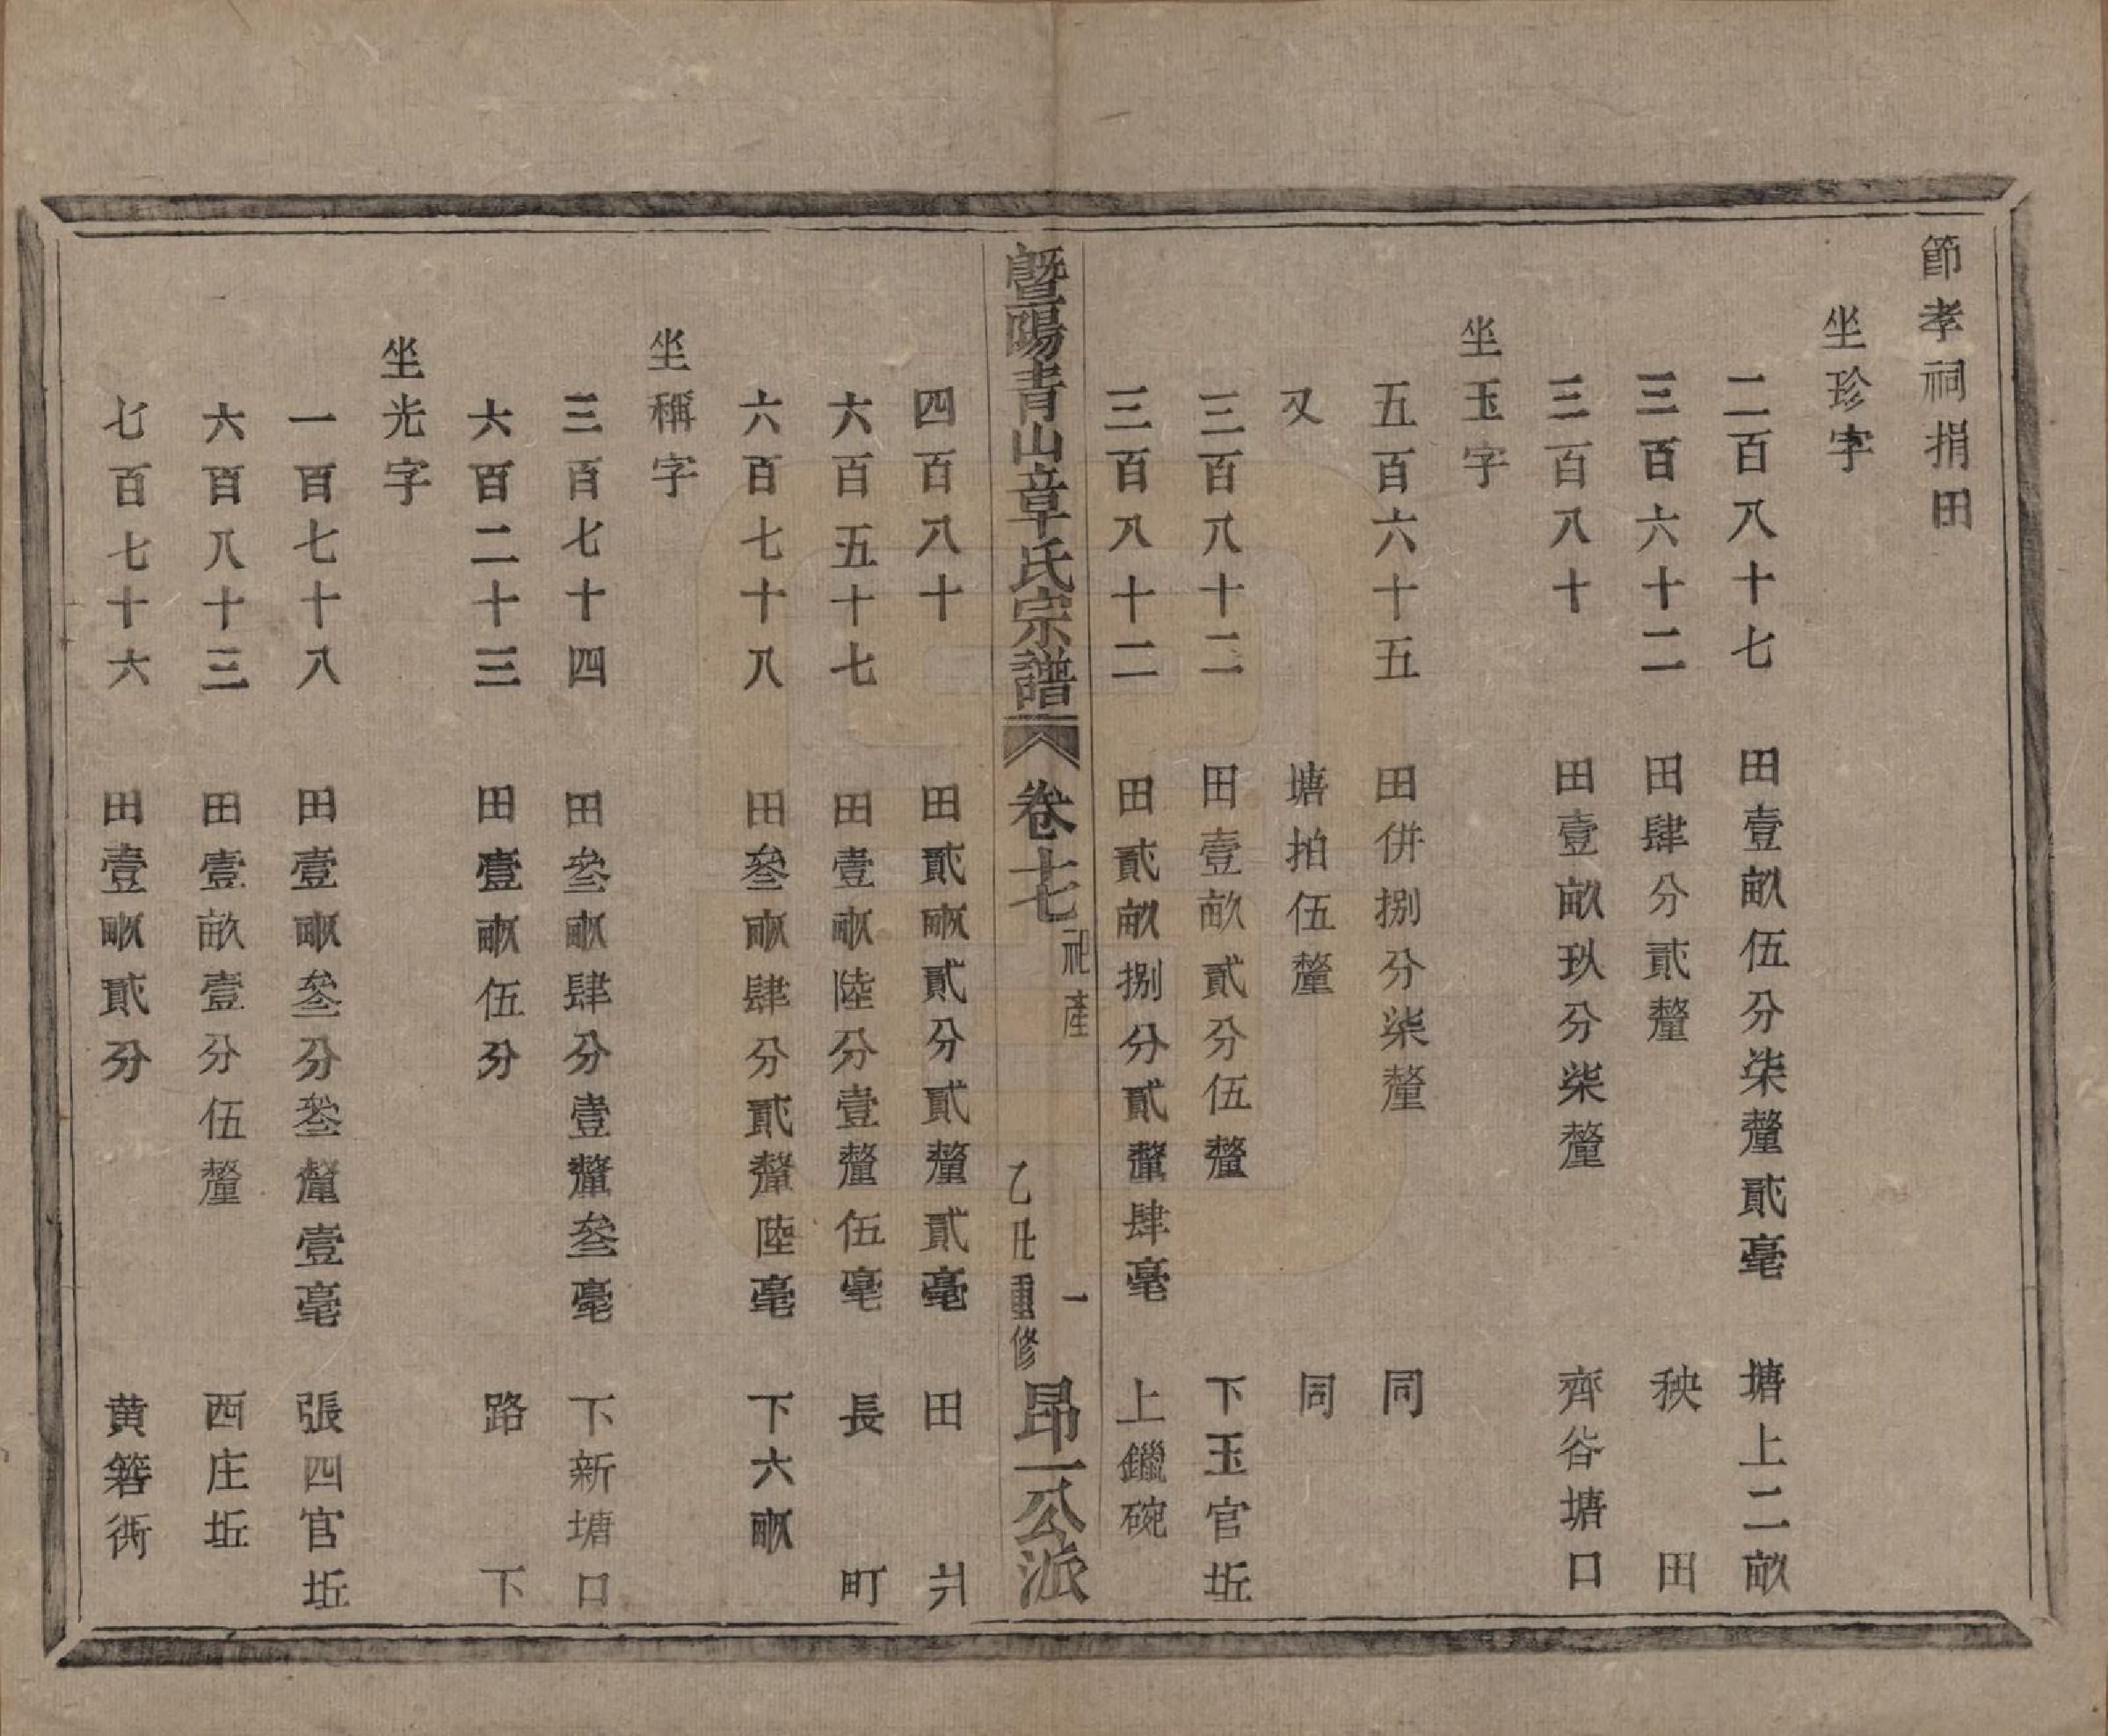 節孝祠捐田
坐珍字
二百八十七 田壹畝伍分柒釐貳毫 塘上二畝
三百六十二 田肆分貳釐 秧田
三百八十 田壹畝玖分柒釐 齊谷塘口
坐玉字
五百六十五 田併捌分柒釐 同
又 塘拍伍釐 同
三百八十二 田壹畝貳分伍釐 下玉官坵
三百八十二 田貳畝捌分貳釐肆毫 上鑞碗
暨陽青山章氏宗譜 卷十七 祀產 一 乙丑重修 昂一公派
四百八十 田貳畝貳分貳釐貳毫 田爿
六百五十七 田壹畝陸分壹釐伍毫 長町
六百七十八 田叄畝肆分貳釐陸毫 下六畝
坐稱字
三百七十四 田叄畝肆分壹釐叄毫 下新塘口
六百二十三 田壹畝伍分 路下
坐光字
一百七十八 田壹畝叄分叄釐壹毫 張四官坵
六百八十三 田壹畝壹分伍釐 西庄坵
七百七十六 田壹畝貳分 黄箬衖